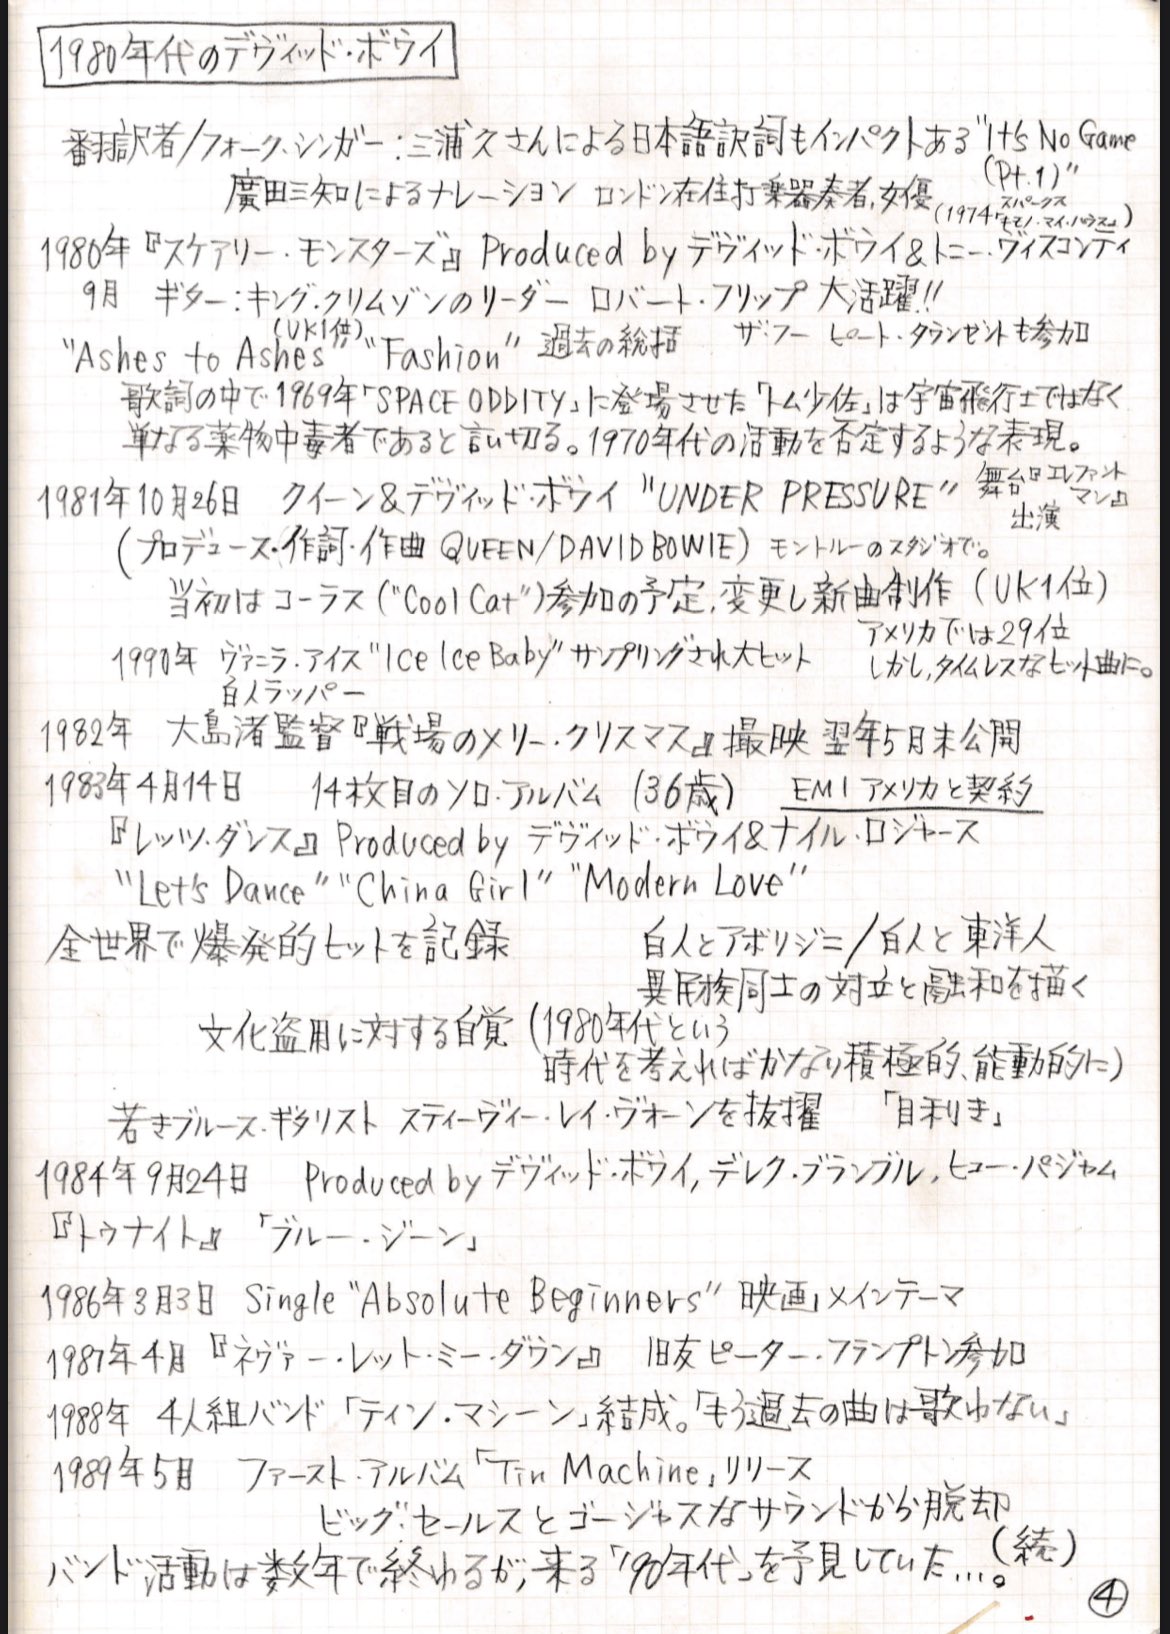 1980年代のデヴィッド・ボウイ
翻訳者/フォーク・シンガー:三浦久さんによる日本語訳詞もインパクトある"It's No Game
(Pt.1)"
廣田三知によるナレーション ロンドン在住打楽器奏者,女優
スパークス
(1974『キモノ・マイ・ハウス』)
1980年『スケアリー・モンスターズ』 Produced by デヴィッド・ボウイ&トニー・ヴィスコンティ
9月 ギター:キング・クリムゾンのリーダー ロバート・フリップ 大活躍!!
(UK1位)
"Ashes to Ashes" "Fashion" 過去の総括 ザ・フー ピート・タウンゼントも参加
歌詞の中で1969年「SPACE ODDITY」に登場させた「トム少佐」は宇宙飛行士ではなく
単なる薬物中毒者であると言い切る。1970年代の活動を否定するような表現。
1981年10月26日 クイーン&デヴィッド・ボウイ "UNDER PRESSURE" 舞台『エレファント
マン』
出演
(プロデュース・作詞・作曲 QUEEN/DAVID BOWIE) モントルーのスタジオで。
当初はコーラス("Cool Cat")参加の予定,変更し新曲制作 (UK1位)
アメリカでは29位
1990年 ヴァニラ・アイス"Ice Ice Baby"サンプリングされ大ヒット しかし,タイムレスなヒット曲に。
白人ラッパー
1982年 大島渚監督『戦場のメリー・クリスマス』撮映 翌年5月末公開
1983年4月14日 14枚目のソロ・アルバム (36歳) EMIアメリカと契約
『レッツ・ダンス』 Produced by デヴィッド・ボウイ&ナイル・ロジャース
"Let's Dance" "China Girl" "Modern Love"
全世界で爆発的ヒットを記録 白人とアボリジニ/白人と東洋人
異民族同士の対立と融和を描く
文化盗用に対する自覚 (1980年代という
時代を考えればかなり積極的、能動的に)
若きブルース・ギタリスト スティーヴィー・レイ・ヴォーンを抜擢 「目利き」
1984年9月24日 Produced by デヴィッド・ボウイ,デレク・ブランブル,ヒュー・パジャム
『トゥナイト』 「ブルー・ジーン」
1986年3月3日 Single "Absolute Beginners" 映画メインテーマ
1987年4月『ネヴァー・レット・ミー・ダウン』 旧友ピーター・フランプトン参加
1988年 4人組バンド「ティン・マシーン」結成。「もう過去の曲は歌わない」
1989年5月 ファースト・アルバム「Tin Machine」リリース
ビッグ・セールスとゴージャスなサウンドから脱却
バンド活動は数年で終わるが,来る「'90年代」を予見していた...。(続)
④